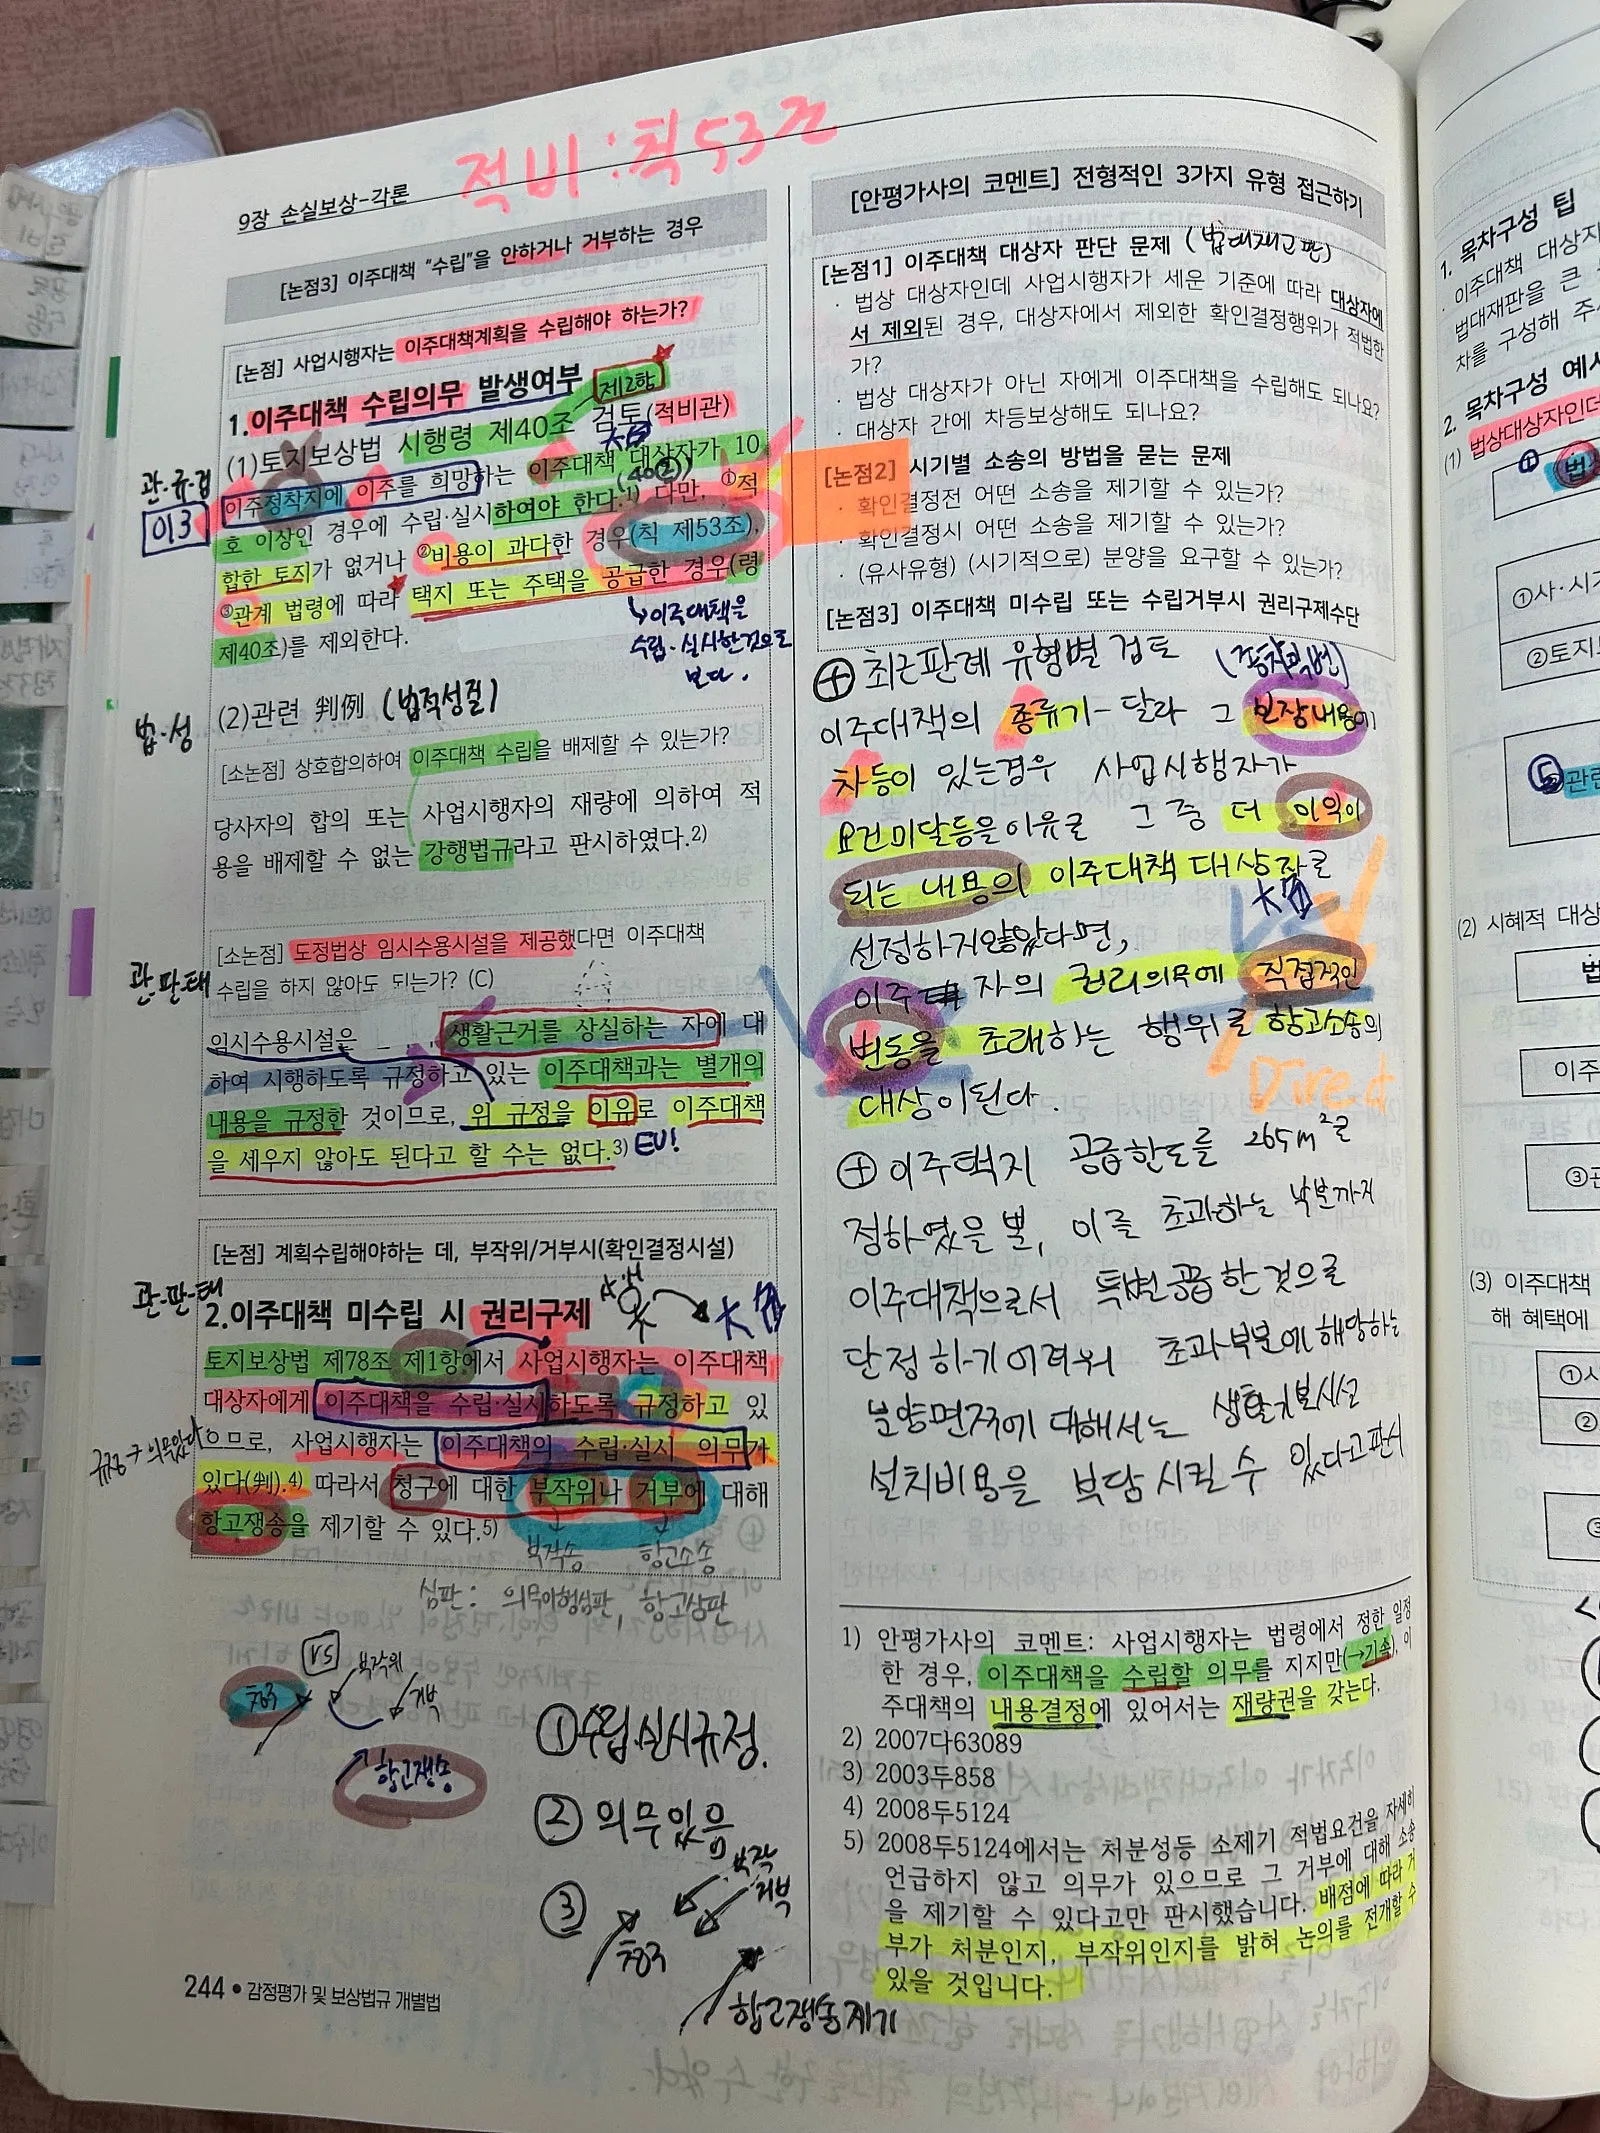 적비 : 칙 53조
9장 손실보상-각론
[논점3] 이주대책 “수립”을 안하거나 거부하는 경우
[논점] 사업시행자는 이주대책계획을 수립해야 하는가?
1.이주대책 수립의무 발생여부
제2항
(1)토지보상법 시행령 제40조 검토(적비관)
관·규·검
이3
이주정착지에 이주를 희망하는 이주대책 대상자가 10
(40②)
호 이상인 경우에 수립·실시하여야 한다.1) 다만, ①적
합한 토지가 없거나 ②비용이 과다한 경우(칙 제53조),
③관계 법령에 따라 택지 또는 주택을 공급한 경우(령
제40조)를 제외한다.
↳이주대책을
수립·실시한것으로
보다.
법·성
(2)관련 判例 (법적성질)
[소논점] 상호합의하여 이주대책 수립을 배제할 수 있는가?
당사자의 합의 또는 사업시행자의 재량에 의하여 적
용을 배제할 수 없는 강행법규라고 판시하였다.2)
관·판·태
[소논점] 도정법상 임시수용시설을 제공했다면 이주대책
수립을 하지 않아도 되는가? (C)
임시수용시설은 생활근거를 상실하는 자에 대
하여 시행하도록 규정하고 있는 이주대책과는 별개의
내용을 규정한 것이므로, 위 규정을 이유로 이주대책
을 세우지 않아도 된다고 할 수는 없다.3)
[논점] 계획수립해야하는 데, 부작위/거부시(확인결정시설)
관·판·태
2.이주대책 미수립 시 권리구제
토지보상법 제78조 제1항에서 사업시행자는 이주대책
대상자에게 이주대책을 수립·실시하도록 규정하고 있
으므로, 사업시행자는 이주대책의 수립·실시 의무가
규정→의무있다
있다(判).4) 따라서 청구에 대한 부작위나 거부에 대해
항고쟁송을 제기할 수 있다.5)
부작송 항고소송
심판 : 의무이행심판, 항고심판
VS
부작위
청구
거부
항고쟁송
①수립·실시규정.
② 의무있음
부작
거부
③
청구
항고쟁송제기
244 • 감정평가 및 보상법규 개별법
[안평가사의 코멘트] 전형적인 3가지 유형 접근하기
[논점1] 이주대책 대상자 판단 문제 (법대재고판)
· 법상 대상자인데 사업시행자가 세운 기준에 따라 대상자에
서 제외된 경우, 대상자에서 제외한 확인결정행위가 적법한
가?
· 법상 대상자가 아닌 자에게 이주대책을 수립해도 되나요?
· 대상자 간에 차등보상해도 되나요?
[논점2] 시기별 소송의 방법을 묻는 문제
· 확인결정전 어떤 소송을 제기할 수 있는가?
· 확인결정시 어떤 소송을 제기할 수 있는가?
· (유사유형) (시기적으로) 분양을 요구할 수 있는가?
[논점3] 이주대책 미수립 또는 수립거부시 권리구제수단
⊕ 최근판례 유형별 검토
이주대책의 종류가 달라 그 보장내용에
차등이 있는경우 사업시행자가
요건미달등을이유로 그 중 더 이익이
되는 내용의 이주대책 대상자로
선정하지않았다면,
이주 자의 권리의무에 직접적인
변동을 초래하는 행위로 항고소송의
Direct
대상이된다.
⊕ 이주택지 공급한도를 265m²로
정하였을 뿐, 이를 초과하는 부분까지
이주대책으로서 특별공급한것으로
단정하기어려워 초과부분에해당하는
분양면적에 대해서는 생활기본시설
설치비용을 부담시킬 수 있다고판시
1) 안평가사의 코멘트: 사업시행자는 법령에서 정한 일정
한 경우, 이주대책을 수립할 의무를 지지만(→기속), 이
주대책의 내용결정에 있어서는 재량권을 갖는다.
2) 2007다63089
3) 2003두858
4) 2008두5124
5) 2008두5124에서는 처분성등 소제기 적법요건을 자세히
언급하지 않고 의무가 있으므로 그 거부에 대해 소송
을 제기할 수 있다고만 판시했습니다. 배점에 따라 거
부가 처분인지, 부작위인지를 밝혀 논의를 전개할 수
있을 것입니다.
1. 목차구성 팁
이주대책 대상자
법대재판을 큰
차를 구성해 주
2. 목차구성 예시
법상대상자인데
(1)
①사·시
②토지
⑤관련
(2) 시혜적 대상
법
이주
③관
(3) 이주대책
해 혜택에
①사
②
③